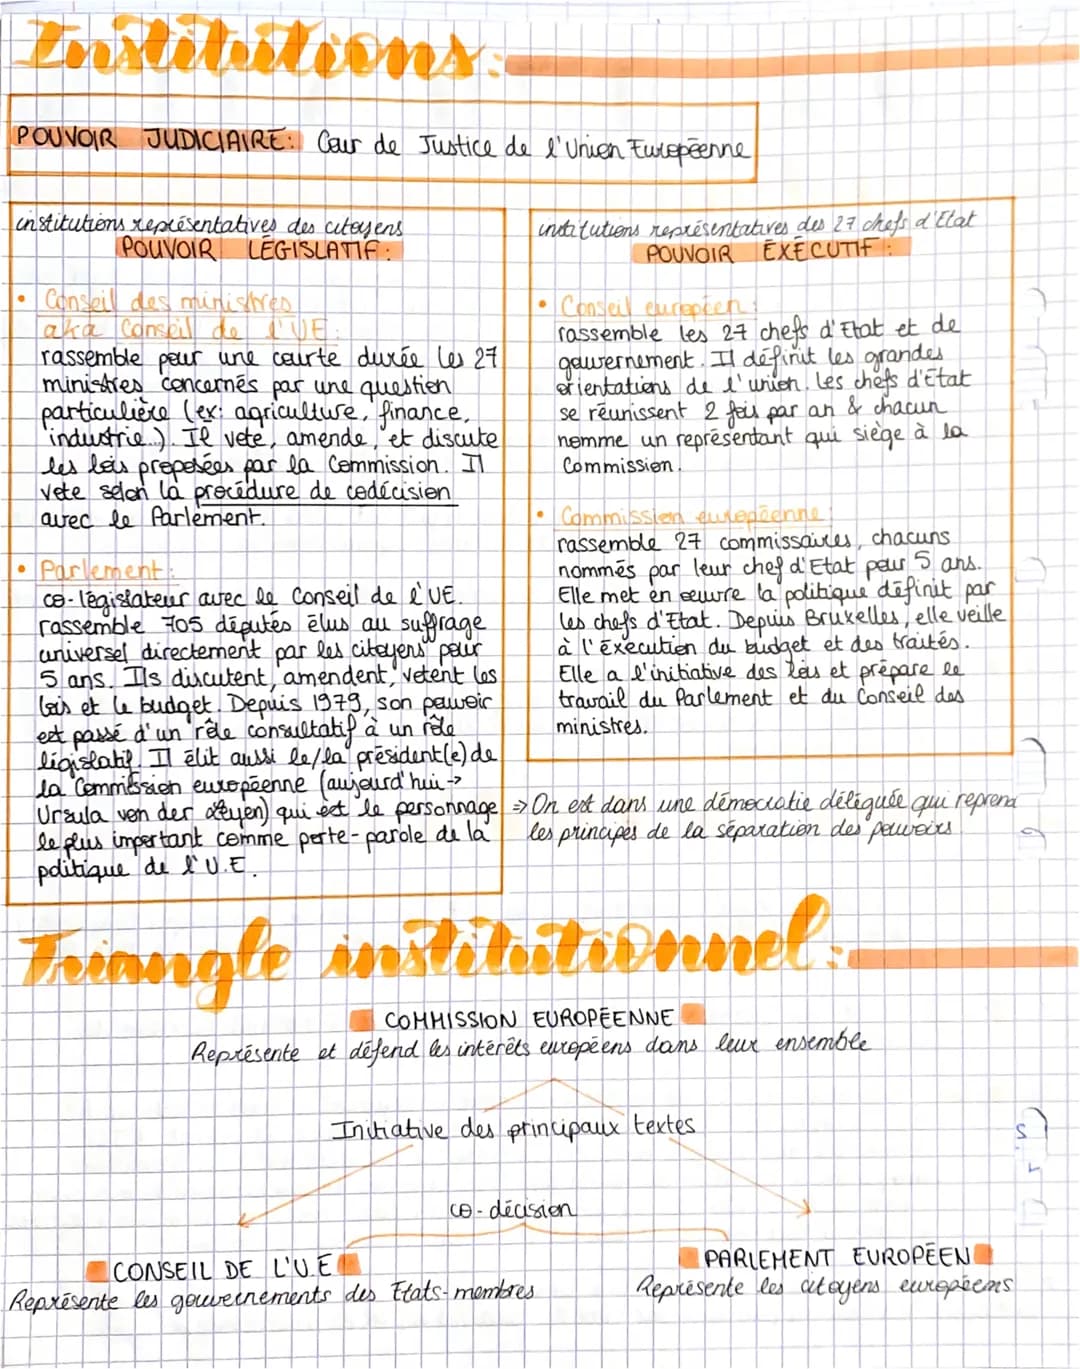 Institutions:
POUVOIR JUDICIAIRE: Cour de Justice de l'Union Européenne
institutions représentatives des citoyens
POUVOIR LÉGISLATIF:
• Conseil des ministres
aka Conseil de l'UE:
rassemble pour une courte durée les 27
ministres concernés par une question
particulière (ex: agriculture, finance,
industrie..). Il vote, amende, et discute
les lois proposées par la Commission. Il
vote selon la procédure de codécision
avec le Parlement.
• Parlement:
co-législateur avec le Conseil de l'UE.
rassemble 705 députés élus au suffrage
universel directement par les citoyens pour
5 ans. Ils discutent, amendent, votent les
lois et le budget. Depuis 1979, son pouvoir
est passé d'un rôle consultatif à un rôle
législatif. Il élit aussi le/la président(e) de
la Commission européenne (aujourd'hui ->
Ursula von der Leyen) qui est le personnage
le plus important comme porte-parole de la
politique de l'U.E.
institutions représentatives des 27 chefs d'Etat
POUVOIR ÉXÉCUTIF:
• Conseil européen:
rassemble les 27 chefs d'Etat et de
gouvernement. Il définit les grandes
orientations de l'union. Les chefs d'État
se réunissent 2 fois par an & chacun
nomme un représentant qui siège à la
Commission.
• Commission européenne:
rassemble 27 commissaires, chacuns
nommés par leur chef d'Etat pour 5 ans.
Elle met en œuvre la politique définit par
les chefs d'Etat. Depuis Bruxelles, elle veille
à l'éxécution du budget et des traités.
Elle a l'initiative des lois et prépare le
travail du Parlement et du Conseil des
ministres.
⇒ On est dans une démocratie déléguée qui reprend
les principes de la séparation des pouvoirs
Triangle institutionnel:
COMMISSION EUROPÉENNE
Représente et défend les intérêts européens dans leur ensemble
Initiative des principaux textes
co-décision
CONSEIL DE L'U.E
Représente les gouvernements des Etats-membres
PARLEMENT EUROPÉEN
Représente les citoyens européens